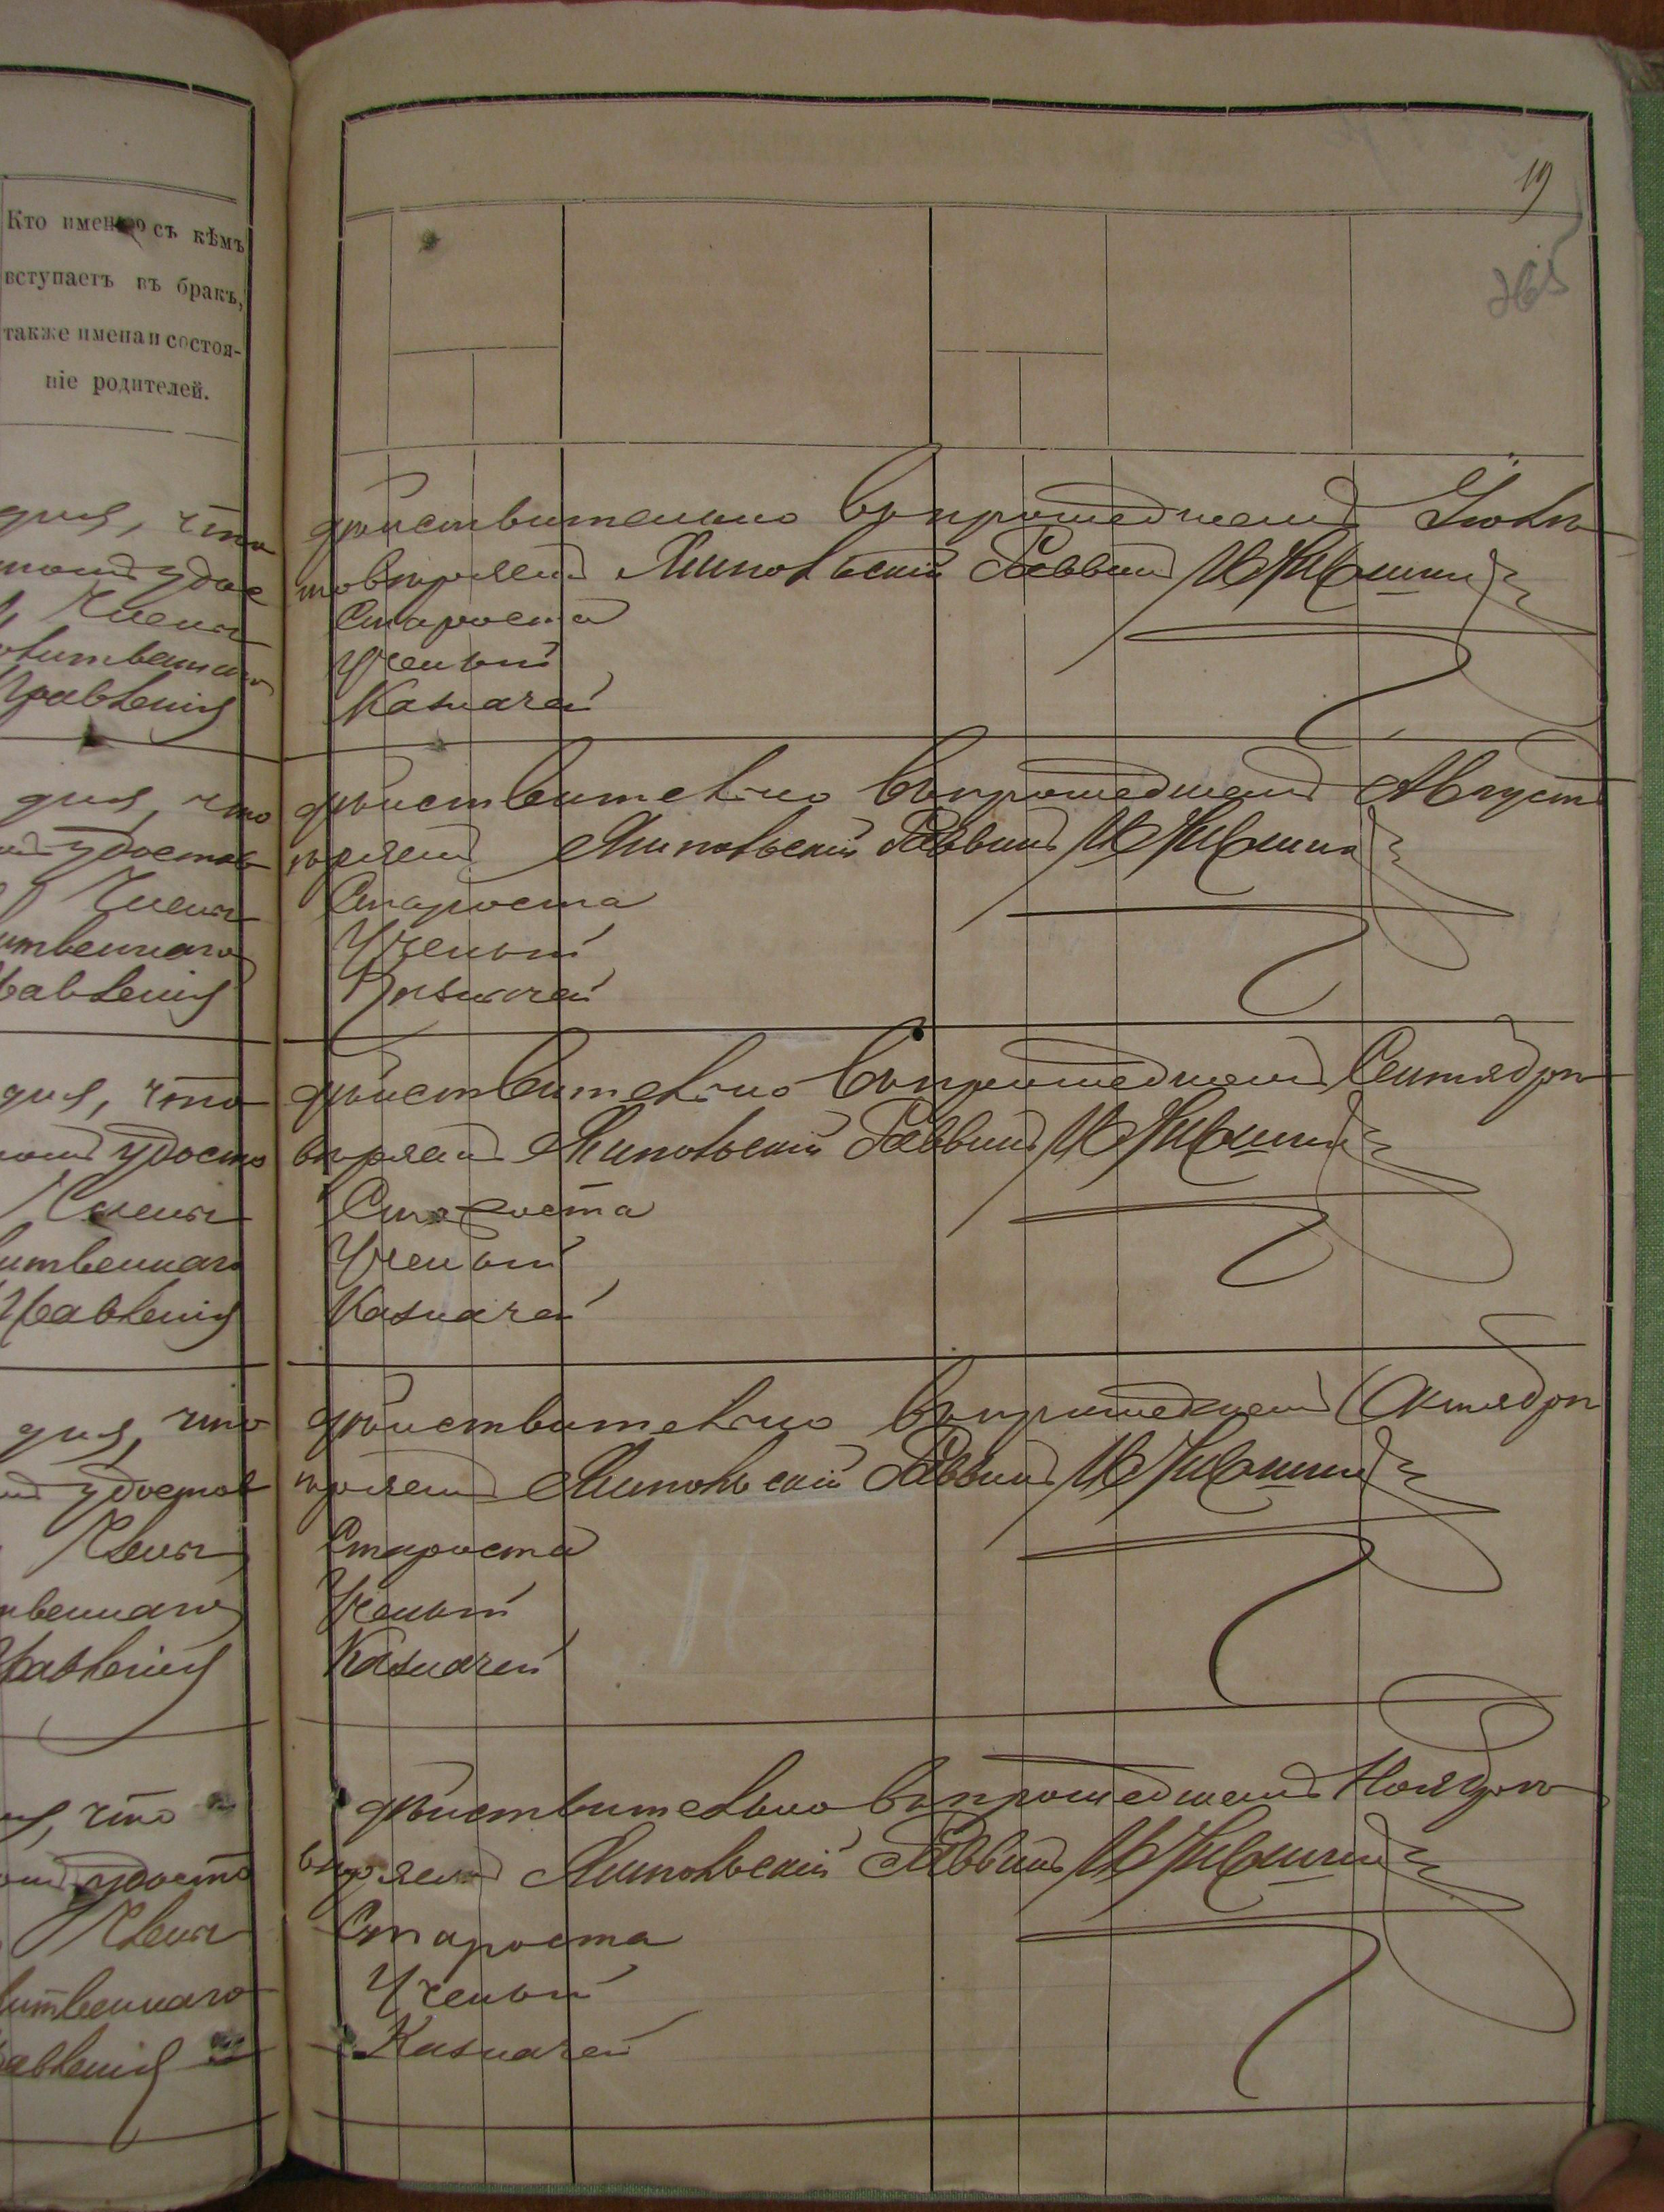 Кто именно съ кѣмъ
вступаетъ въ бракъ,
также имена и состоя-
ніе родителей.
дня, что
удос
Члены
Правленія
дня, что
удостов
Члены
итвеннаго
равленія
дня, что
удосто
Члены
итвеннаго
Правленія
дня, что
удостов
Члены
твеннаго
Правленія
что
удосто
Члены
итвеннаго
авленія
19
265
дѣйствительно въ прошедшемъ Іюль
товѣряемъ Липовецкій Раввинъ
Староста
Ученый
Казначей
дѣйствительно въ прошедшемъ Августѣ
вѣряемъ Раввинъ
Староста
Ученый
Казначей
дѣйствительно въ прошедшемъ Сентябрѣ
вѣряемъ Раввинъ
Староста
Ученый
Казначей
дѣйствительно въ прошедшемъ Октябрѣ
вѣряемъ Раввинъ
Староста
Ученый
Казначей
дѣйствительно въ прошедшемъ Ноябрѣ
вѣряемъ Раввинъ
Староста
Ученый
Казначей